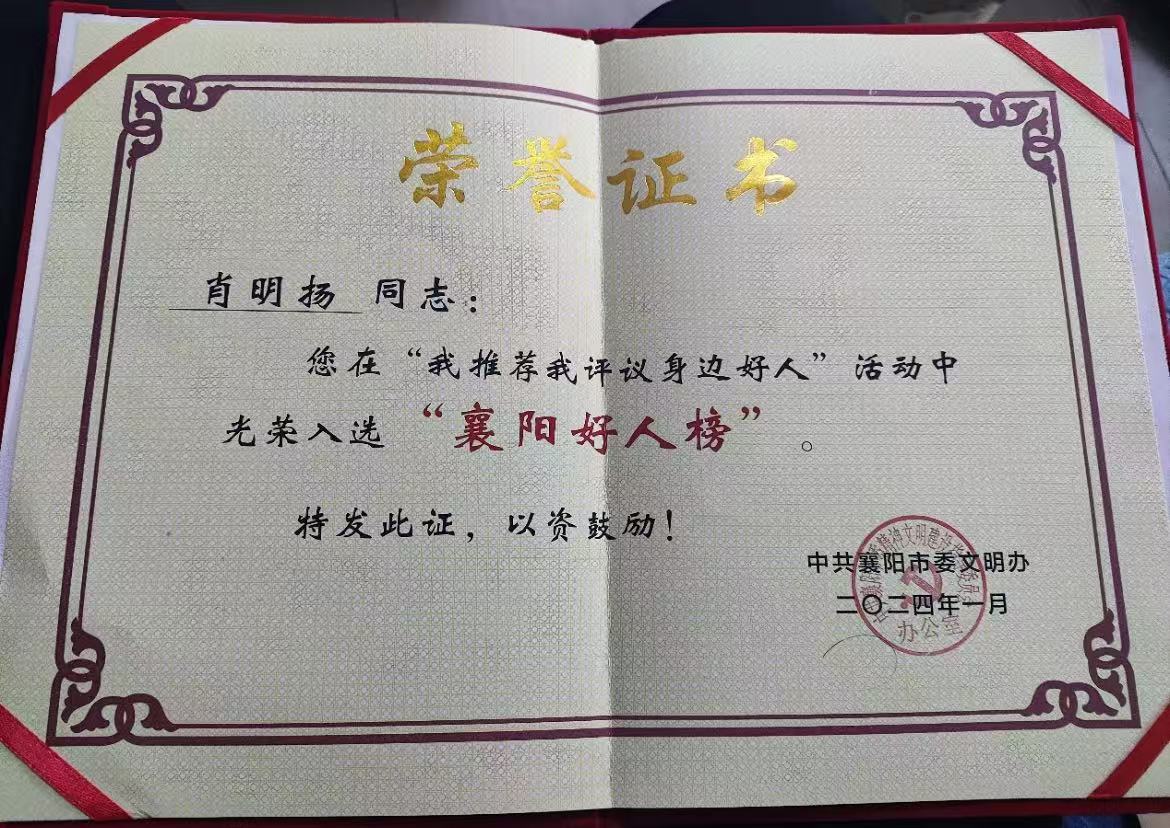 荣誉证书
肖明扬 同志：
您在“我推荐我评议身边好人”活动中
光荣入选 “襄阳好人榜” 。
特发此证，以资鼓励！
中共襄阳市委文明办
二〇二四年一月
办公室